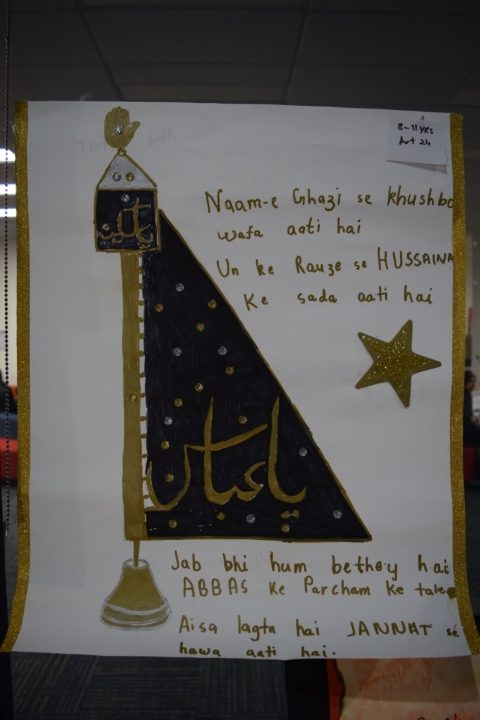 8-11 yrs
Art 24
Naam-e Ghazi se khushbo
wafa aati hai
Un ke Rauze se HUSSAINA
Ke sada aati hai
یا عباس
Jab bhi hum bethey hai
ABBAS Ke Parcham Ke tale
Aisa lagta hai JANNAT se
hawa aati hai.